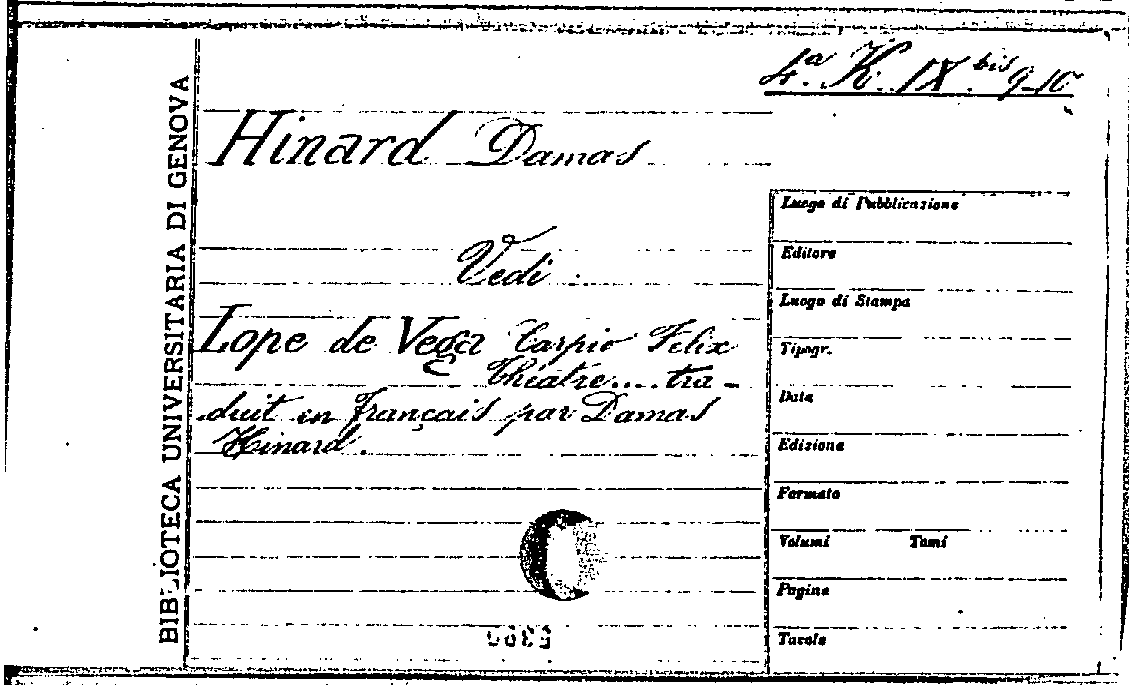 4ª. K. IX. bis 9-10
BIBLIOTECA UNIVERSITARIA DI GENOVA
Hinard Damas
Vedi
Lope de Vega Carpio Felix
Théatre.... tra-
duit en français par Damas
Hinard.
Luogo di Pubblicazione
Editore
Luogo di Stampa
Tipogr.
Data
Edizione
Formato
Volumi Tomi
Pagine
Tavole